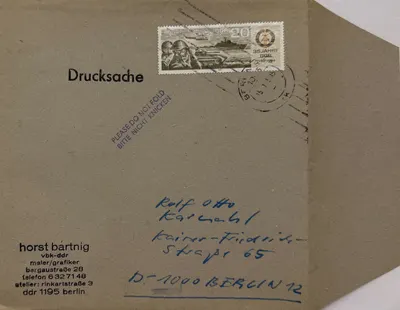 20
DDR
Drucksache
PLEASE DO NOT FOLD
BITTE NICHT KNICKEN
Rolf Otto
Karnahl
Kaiser-Friedrich-
Straße 65
D-1000 BERLIN 12
horst bartnig
vbk-ddr
maler/grafiker
bergaustraße 28
telefon 6 32 71 48
atelier: rinkartstraße 3
ddr 1195 berlin